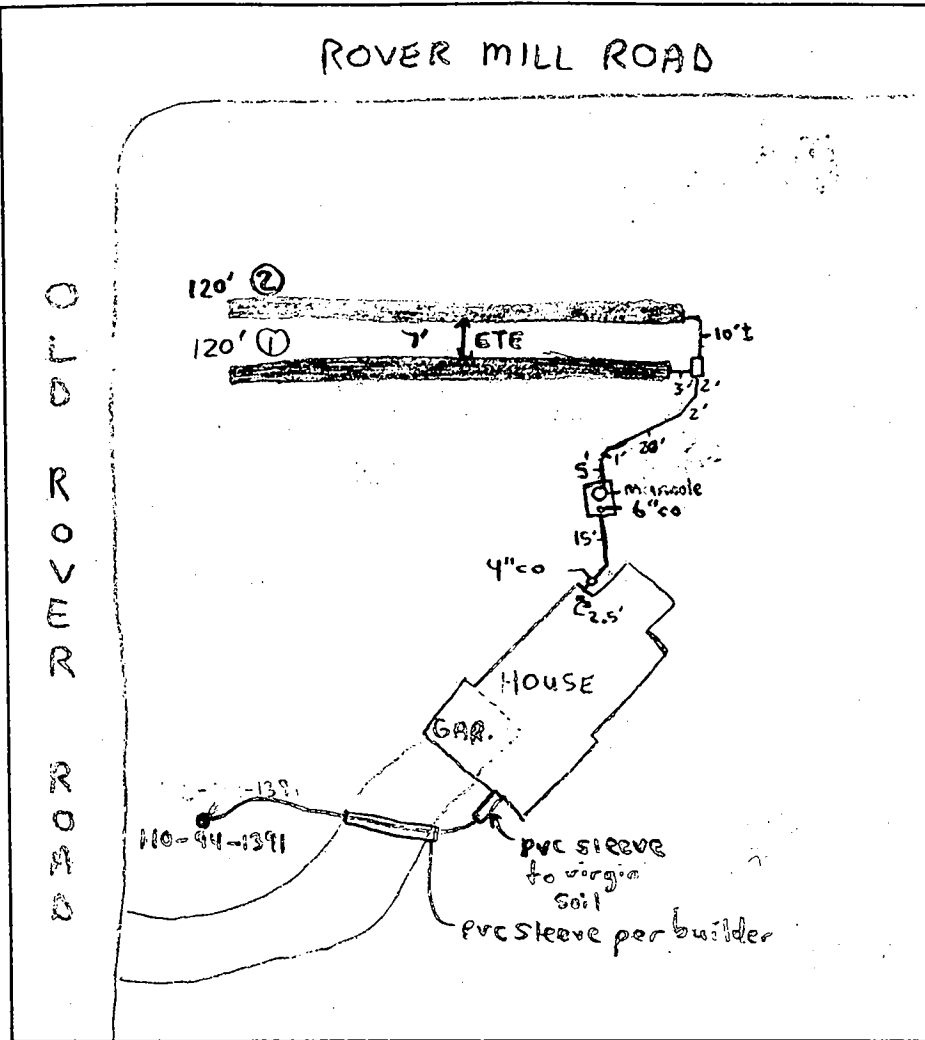 ROVER MILL ROAD
OLD ROVER ROAD
120' ②
120' ①
7'
ETE
10'±
3'
2'
2'
20'
1'
5'
manhole
6"co
15'
4"co
2.5'
HOUSE
GAR.
-1391
110-94-1391
PVC sleeve
to virgin
soil
PVC sleeve per builder